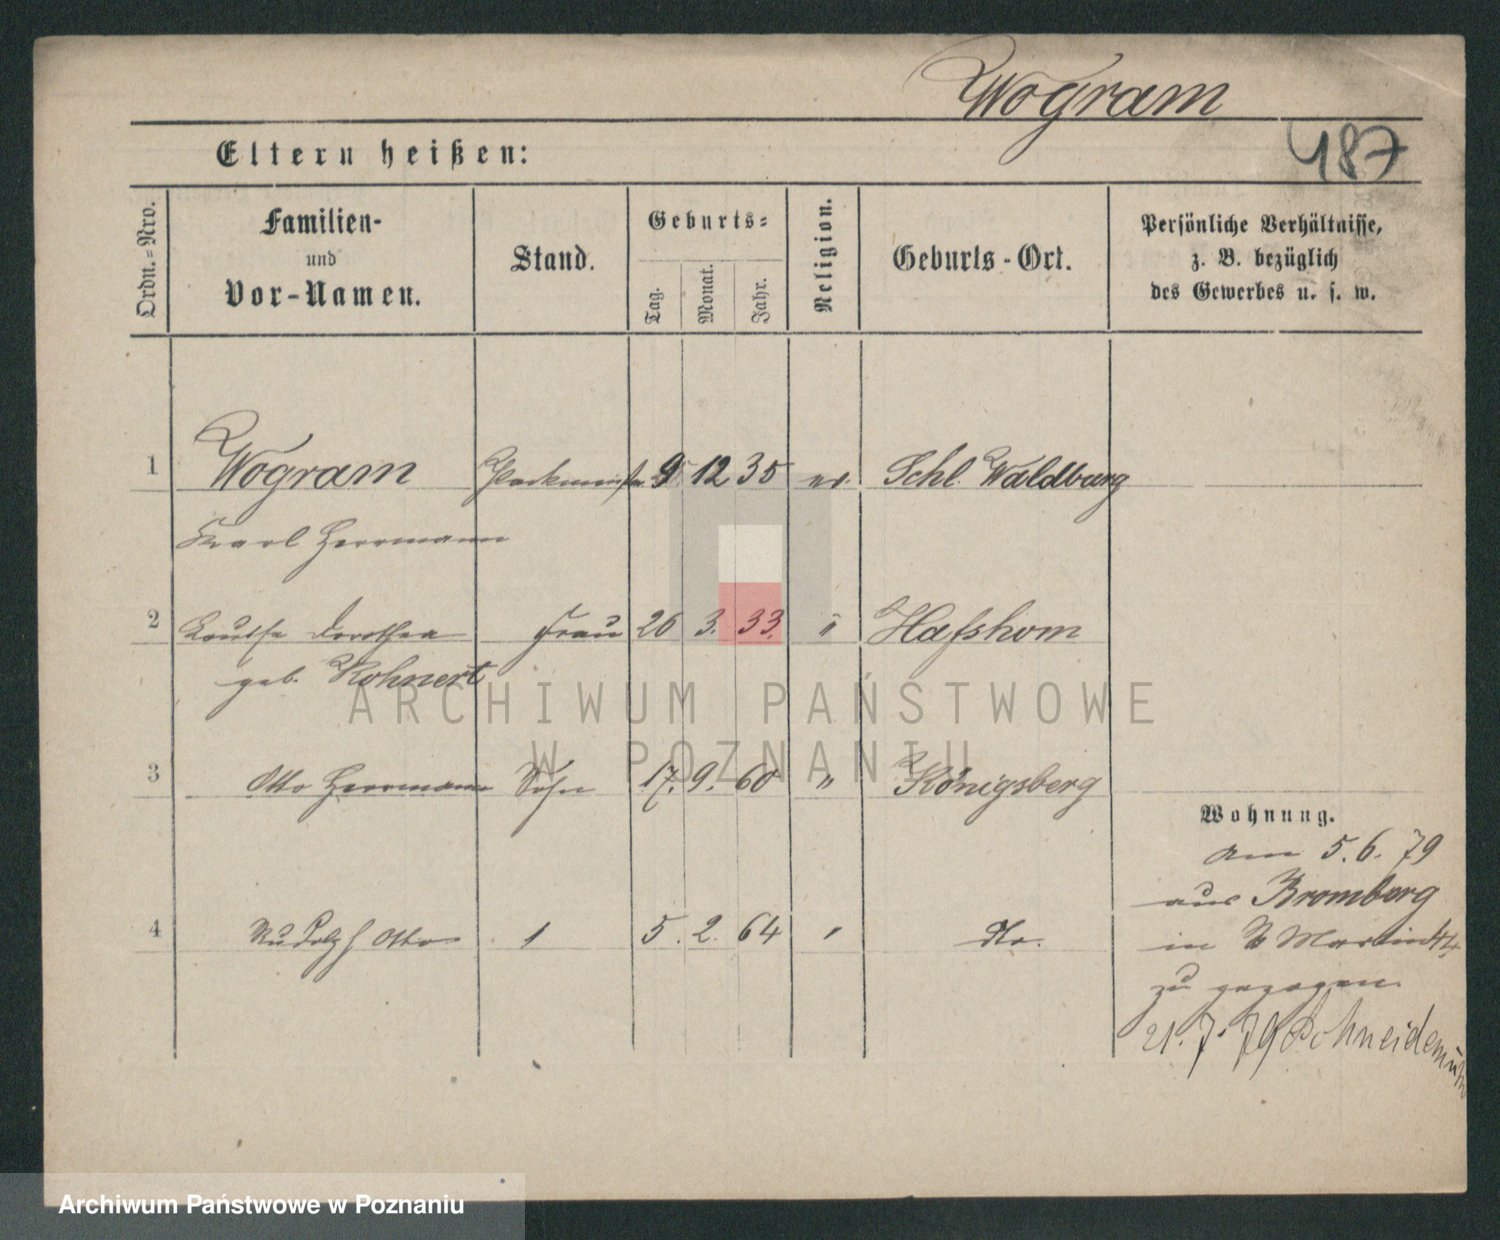 Wogram
487
Eltern heißen:
Ordn.-Nro.
Familien-
und
Vor-Namen.
Stand.
Geburts-
Tag.
Monat.
Jahr.
Religion.
Geburts-Ort.
Persönliche Verhältnisse,
z. B. bezüglich
des Gewerbes u. s. w.
1 Wogram 9 12 35 ev. Schl. Waldburg
Karl Herrmann
2 Louise Dorothea Frau 26 3. 33. " Hafshom
geb. Kohnert
ARCHIWUM PAŃSTWOWE
W POZNANIU
3 Otto Herrmann Sohn 17. 9. 60 " Königsberg
Wohnung.
am 5.6.79
aus Bromberg
4 Rudolf Otto 5. 2. 64 " do.
in St Martin 44
zu gezogen.
21.7.79 Schneidemühl
Archiwum Państwowe w Poznaniu